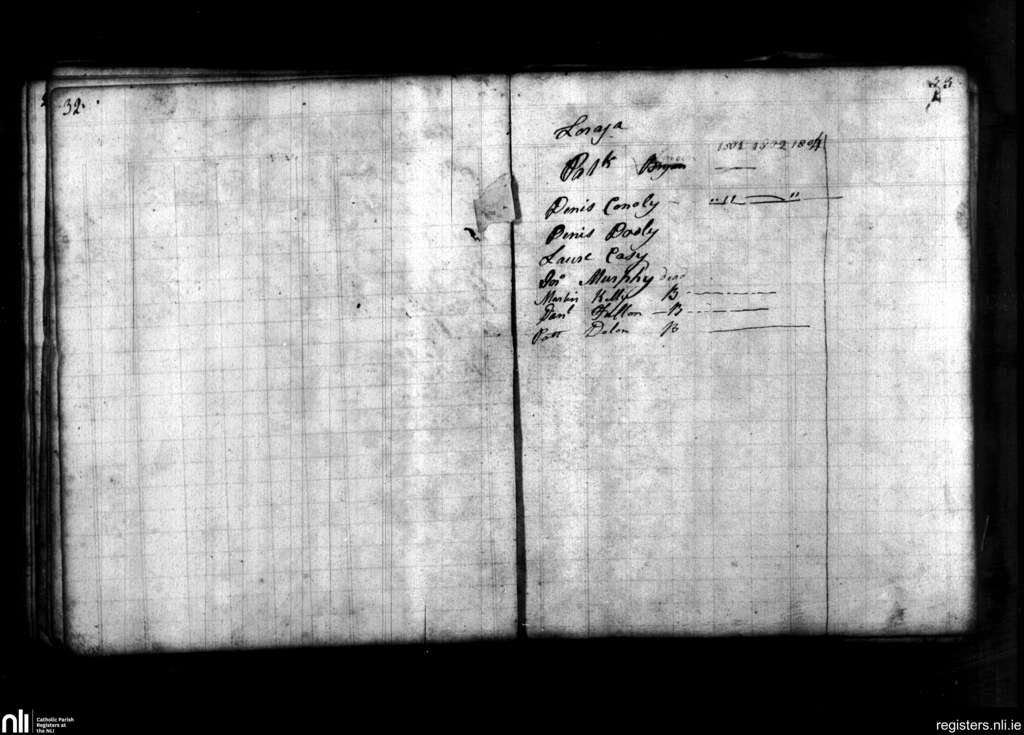 32.
33
Loraga
1801 1802 1804
Patk Bryan
Denis Conoly
Denis Dooly
Laurc Casy
Jno Murphy dead
Martin Kelly B
Danl Fallon B
Patt Dolan B
nli
Catholic Parish
Registers at
the NLI
registers.nli.ie